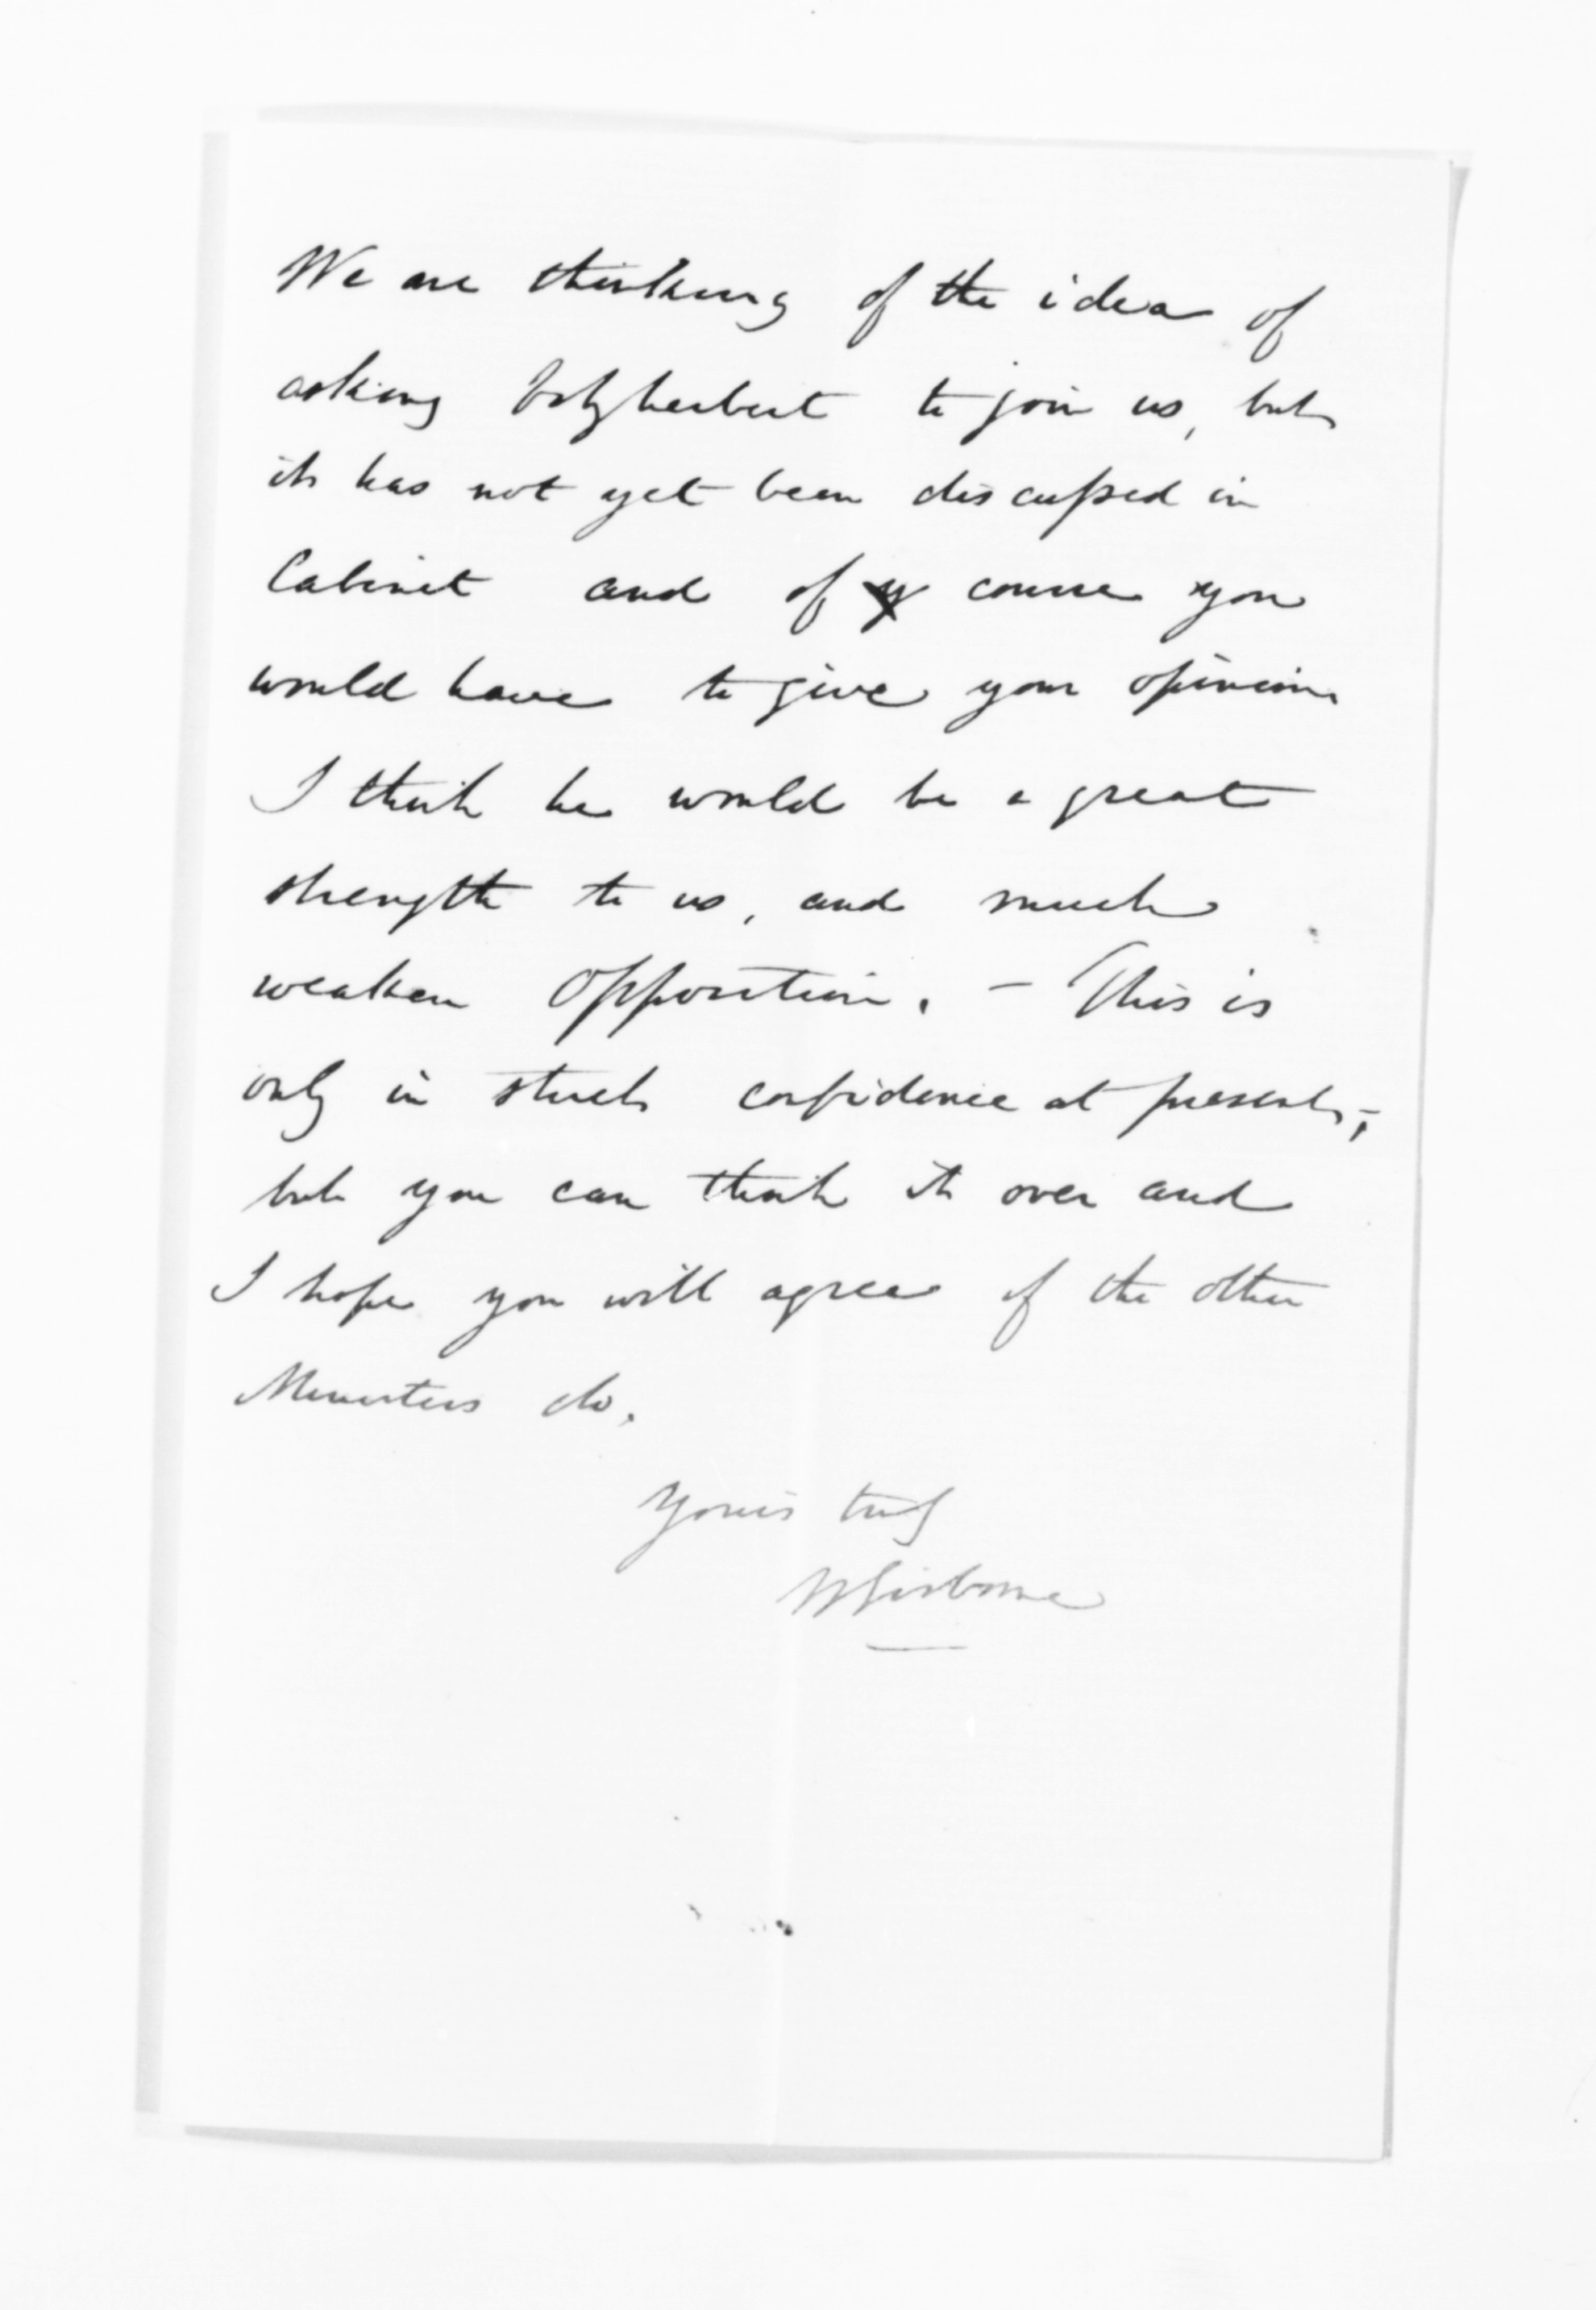 We are thinking of the idea of
asking Fitzherbert to join us, but
it has not yet been discussed in
Cabinet and of course you
would have to give your opinion
I think he would be a great
strength to us, and much
weaken Opposition. - This is
only in strict confidence at present,-
but you can think it over and
I hope you will agree if the other
Ministers do.
Yours truly
WGisborne